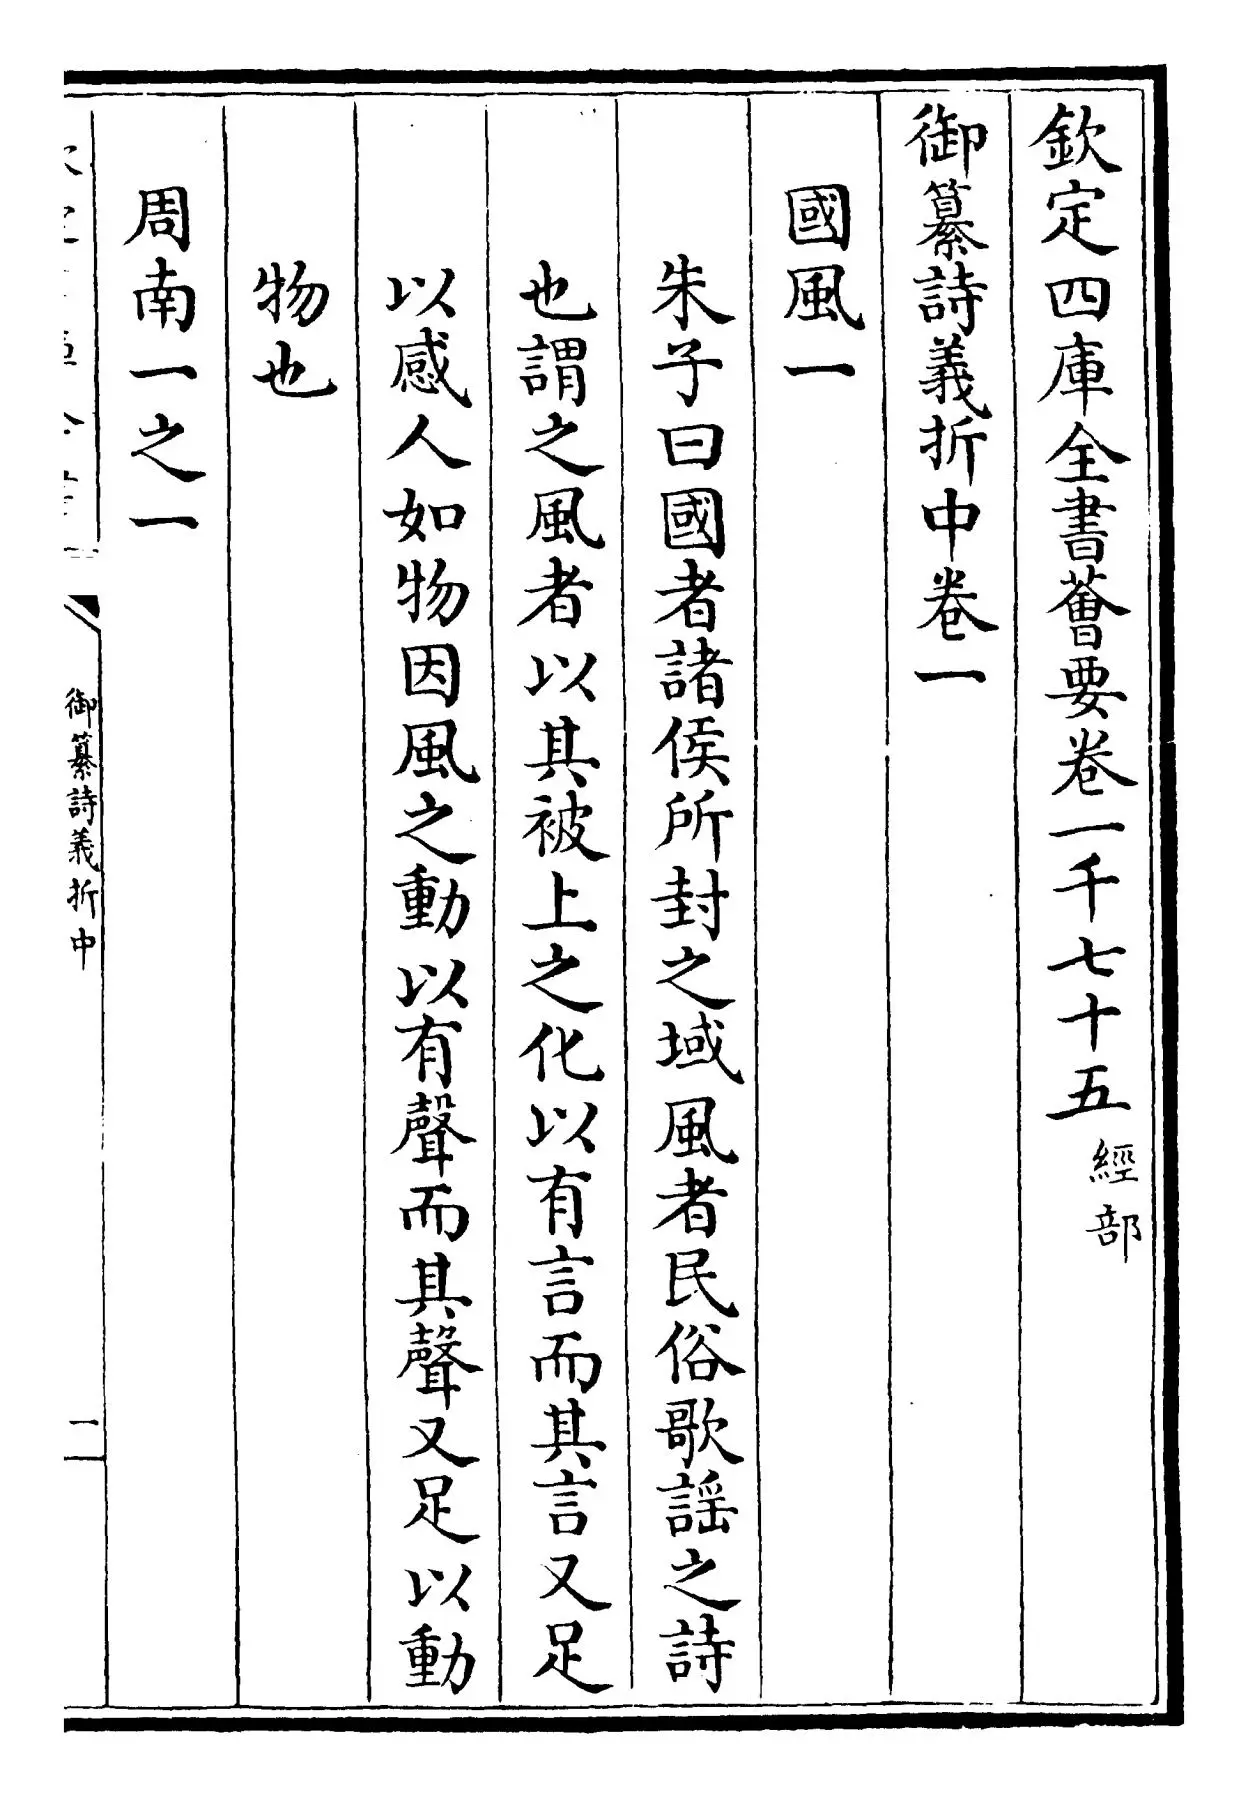 欽定四庫全書薈要卷一千七十五 經部
御纂詩義折中卷一
國風一
朱子曰國者諸侯所封之域風者民俗歌謡之詩
也謂之風者以其被上之化以有言而其言又足
以感人如物因風之動以有聲而其聲又足以動
物也
周南一之一
御纂詩義折中 一